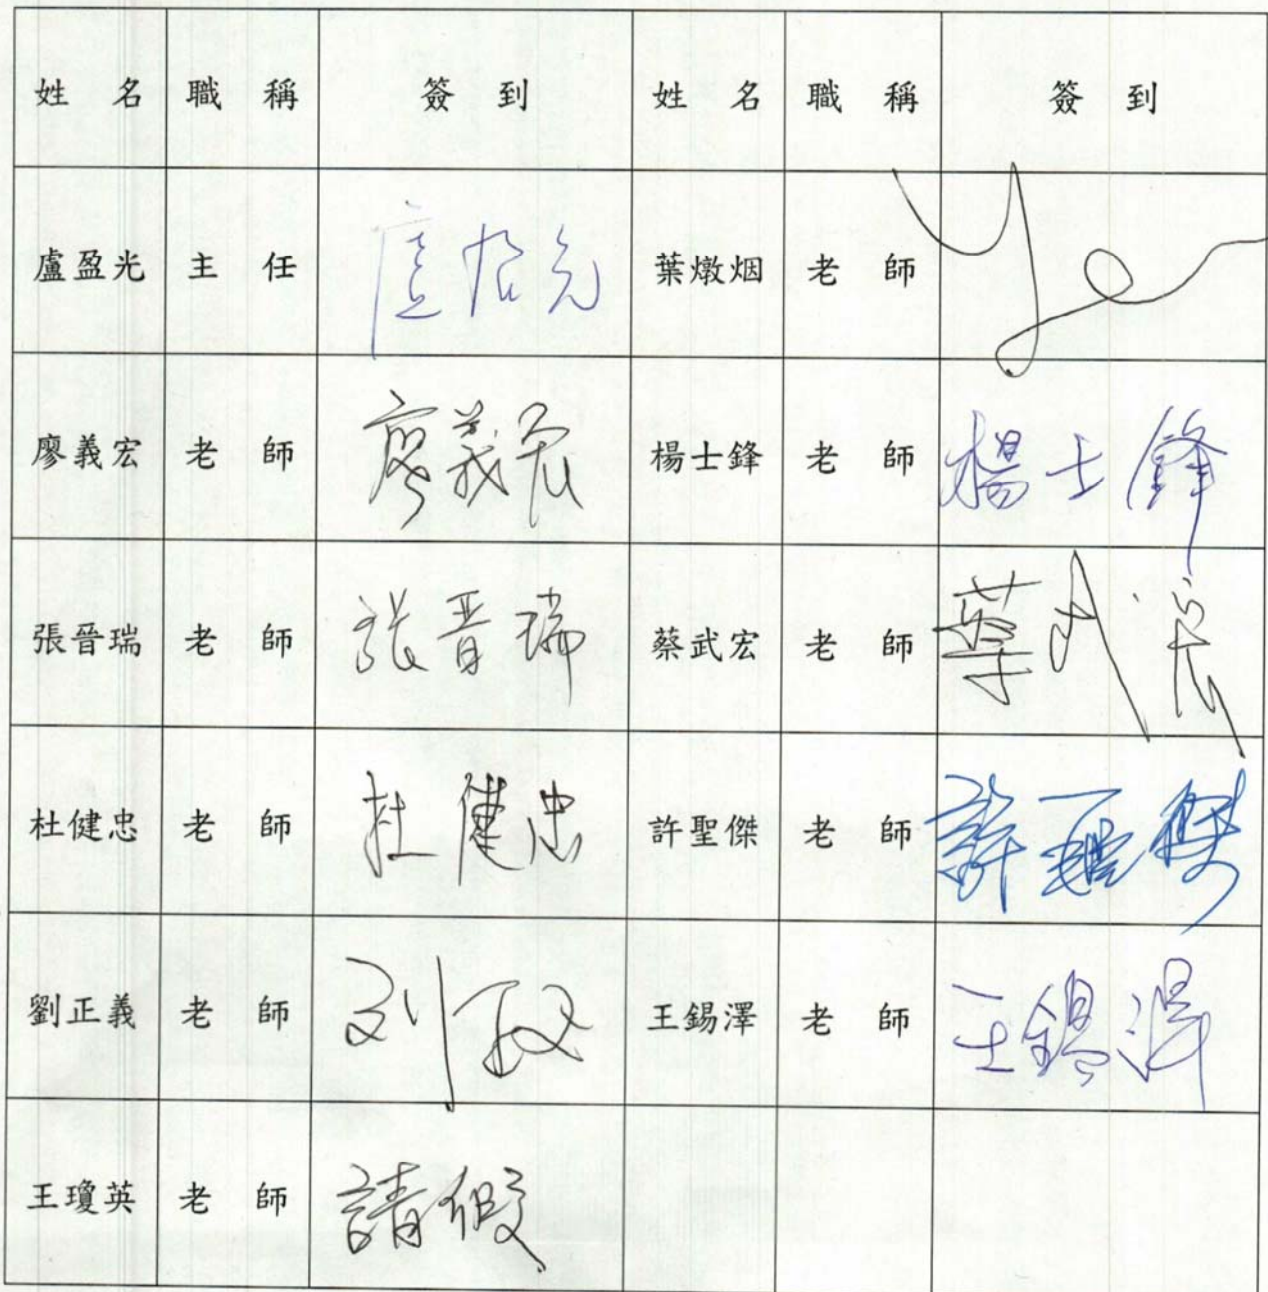 姓名 職稱 簽到 姓名 職稱 簽到
盧盈光 主任 盧盈光 葉燉烟 老師 Ye
廖義宏 老師 廖義宏 楊士鋒 老師 楊士鋒
張晉瑞 老師 張晉瑞 蔡武宏 老師 蔡武宏
杜健忠 老師 杜健忠 許聖傑 老師 許聖傑
劉正義 老師 刘正义 王錫澤 老師 王錫澤
王瓊英 老師 請假